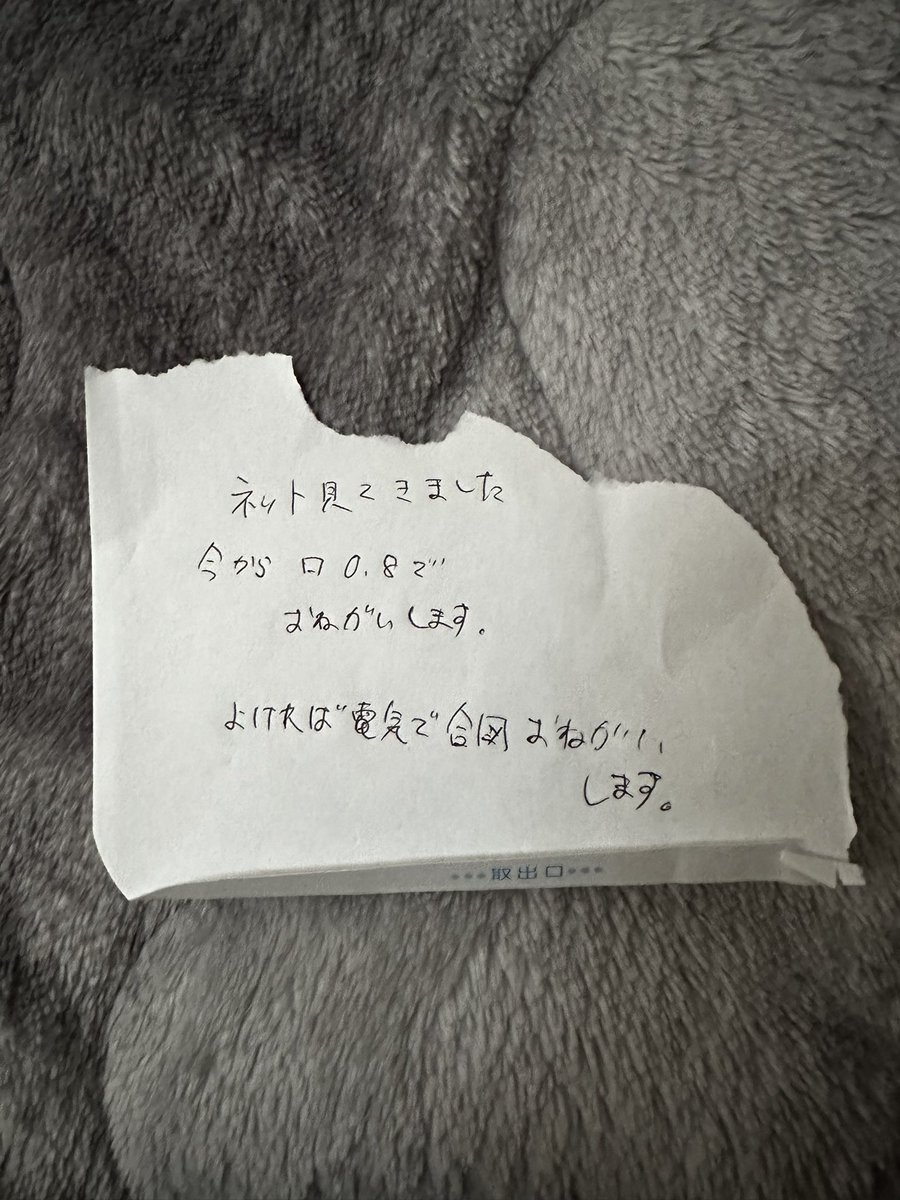 ネット見てきました
今から 口 0.8で
おねがいします。
よければ電気で合図おねがい
します。
•••取出口•••